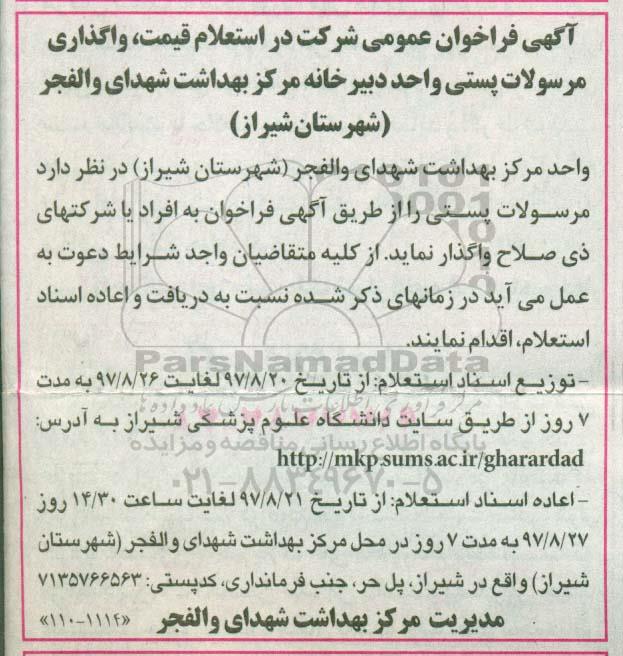 آگهی فراخوان عمومی شرکت در استعلام قیمت، واگذاری
مرسولات پستی واحد دبیرخانه مرکز بهداشت شهدای والفجر
(شهرستان شیراز)
واحد مرکز بهداشت شهدای والفجر (شهرستان شیراز) در نظر دارد
مرسولات پستی را از طریق آگهی فراخوان به افراد یا شرکتهای
ذی صلاح واگذار نماید. از کلیه متقاضیان واجد شرایط دعوت به
عمل می آید در زمانهای ذکر شده نسبت به دریافت و اعاده اسناد
استعلام، اقدام نمایند.
ParsNamadData
- توزیع اسناد استعلام: از تاریخ ۹۷/۸/۲۰ لغایت ۹۷/۸/۲۶ به مدت
۷ روز از طریق سایت دانشگاه علوم پزشکی شیراز به آدرس:
پایگاه اطلاع رسانی مناقصه و مزایده
http://mkp.sums.ac.ir/gharardad
۰۲۱-۸۸۳۴۹۶۷۰-۵
- اعاده اسناد استعلام: از تاریخ ۹۷/۸/۲۱ لغایت ساعت ۱۴/۳۰ روز
۹۷/۸/۲۷ به مدت ۷ روز در محل مرکز بهداشت شهدای والفجر (شهرستان
شیراز) واقع در شیراز، پل حر، جنب فرمانداری، کدپستی: ۷۱۳۵۷۶۶۵۶۳
مدیریت مرکز بهداشت شهدای والفجر «۱۱۱۴-۱۱۰»